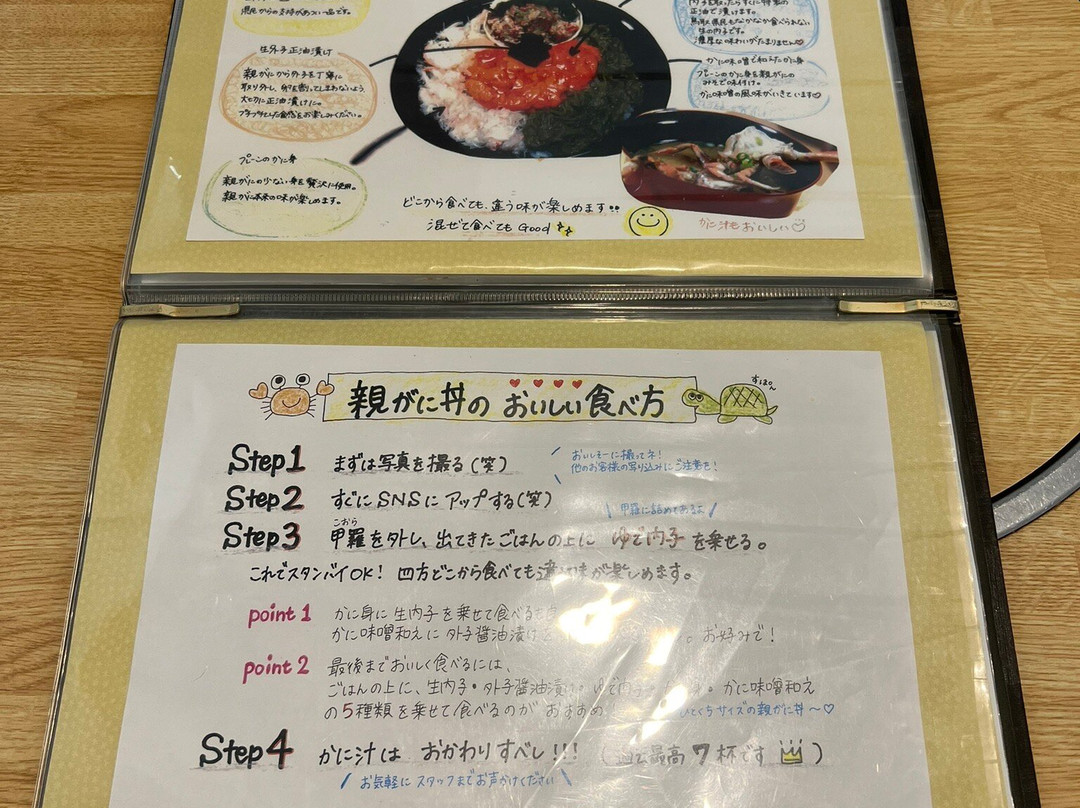 県民からの支持があつい一品です。
生外子正油漬け
親がにから外子を丁寧に
取り外し、卵を割ってしまわないよう、
大切に正油漬けに。
プチプチとした食感をお楽しみください。
プレーンのかに身
親がにの少ない身を贅沢に使用。
親がに本来の味が楽しめます。
内子を取ったらすぐに特製の
正油で漬けます。
鳥取県民もなかなか食べられない
生の内子です。
濃厚な味わいがたまりません
かに味噌で和えたかに身
プレーンのかに身を親がにの
みそで味付け。
かに味噌の風味がいきています
どこから食べても、違う味が楽しめます!!
混ぜて食べても Good
かに汁もおいしい
親がに丼の おいしい食べ方
すぽ〜ん
Step1 まずは写真を撮る(笑)
おいしそーに撮ってネ!
他のお客様の写り込みにご注意を!
Step2 すぐにSNSに アップする(笑)
甲羅に詰めてあるよ
Step3 甲羅を外し、出てきたごはんの上に ゆで内子 を乗せる。
こおら
これでスタンバイOK! 四方どこから食べても違う味が楽しめます。
point 1 かに身に 生内子を乗せて食べる
かに味噌和えに 外子醤油漬け お好みで!
point 2 最後までおいしく食べるには、
ごはんの上に、生内子・外子醤油漬け・ゆで内子・かに味噌和え
の5種類を乗せて食べるのが おすすめ
ひとくちサイズの親がに丼〜♡
Step4 かに汁は おかわりすべし!!! (過去最高 7杯です )
お気軽に スタッフまでお声かけください